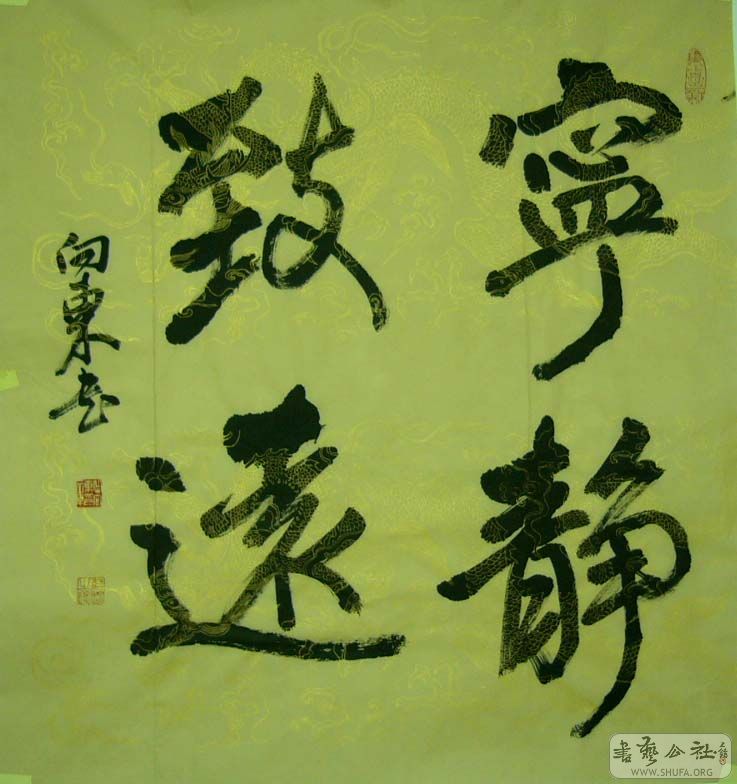 寧靜
致遠
向東书
書藝公社
WWW.SHUFA.ORG